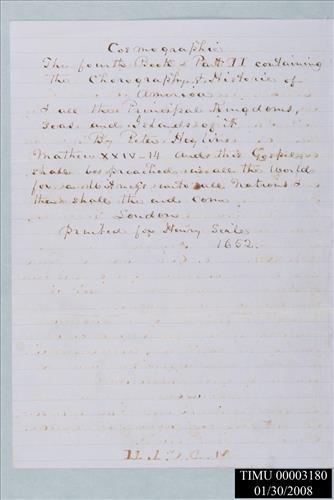 Cosmographie
The fourth Book & Part II containing
the Chorography & Historie of
America
& all the Principal Kingdoms,
Seas and Islands of it
By Peter Heylin
Mathew XXIV-14 And this Gospel
shall be preached in all the World
for a witness unto all Nations &
then shall the end come
London
printed for Henry Seile
1652.
TIMU 00003180
01/30/2008